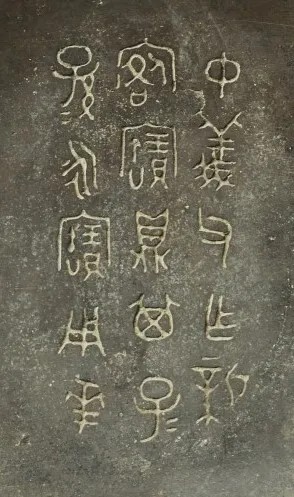 中義父乍新
客寶鼎其子〻
孫〻永寶用華